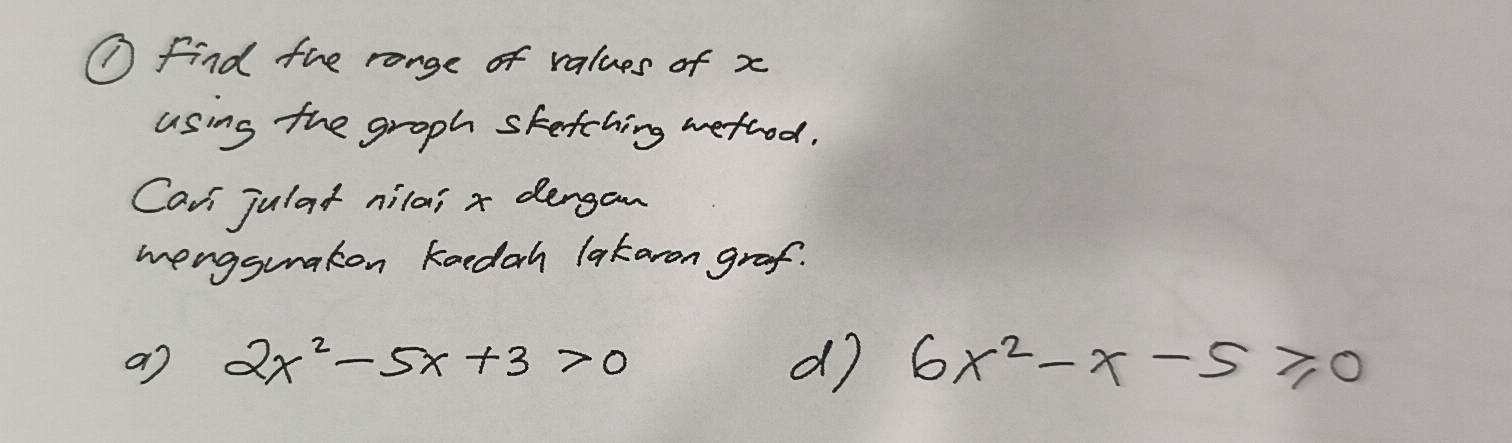 ① Find the range of values of x
using the graph sketching method.
Cari julat nilai x dengan
menggunakan kaedah lakaran graf.
a) 2x² - 5x + 3 > 0
d) 6x² - x - 5 ⩾ 0